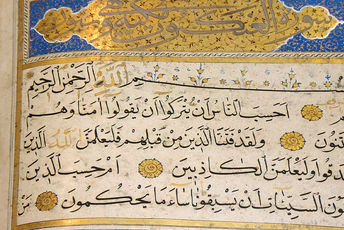 سورة العنكبوت
الله الرحمن الرحيم
احسب الناس ان يتركوا ان يقولوا امنا وهم
ولقد فتنا الذين من قبلهم فليعلمن الله الذين
وليعلمن الكاذبين ام حسب الذين
السيئات ان يسبقونا ساء ما يحكمون